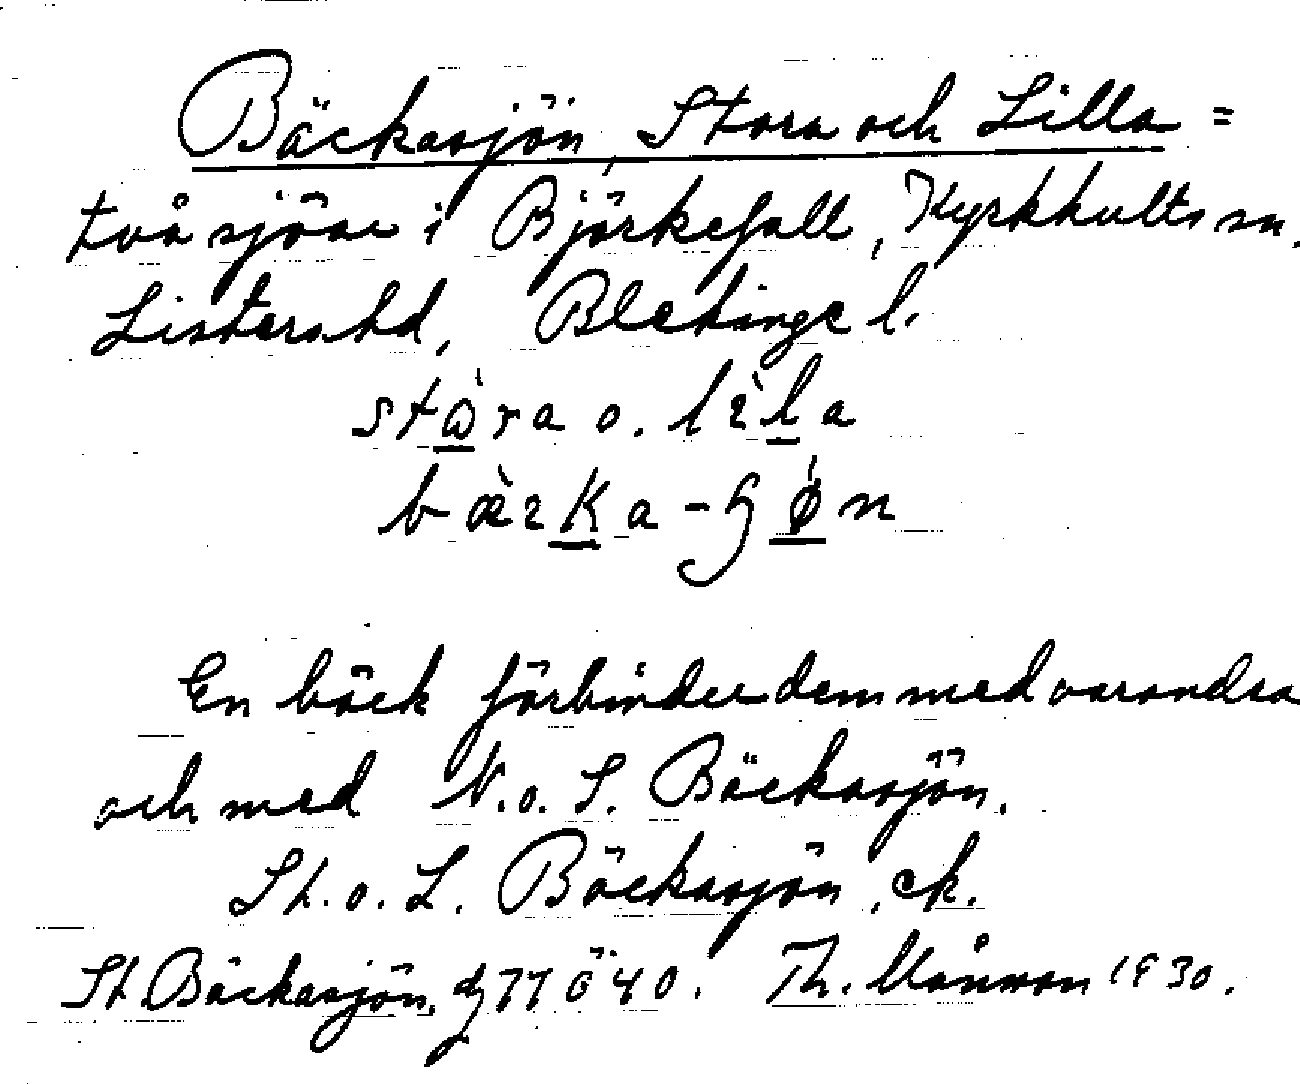 Bäckasjön, Stora och Lilla =
två sjöar i Björkefall, Kyrkhults sn.
Listers hd, Blekinge l.
stòra o. lìla
bæ̀rka-
En bäck förbinder dem med varandra
och med N. o. S. Bäckasjön.
St. o. L. Bäckasjön, ek.
St. Bäckasjön, 77 Ö 40. Th. Månson 1930.